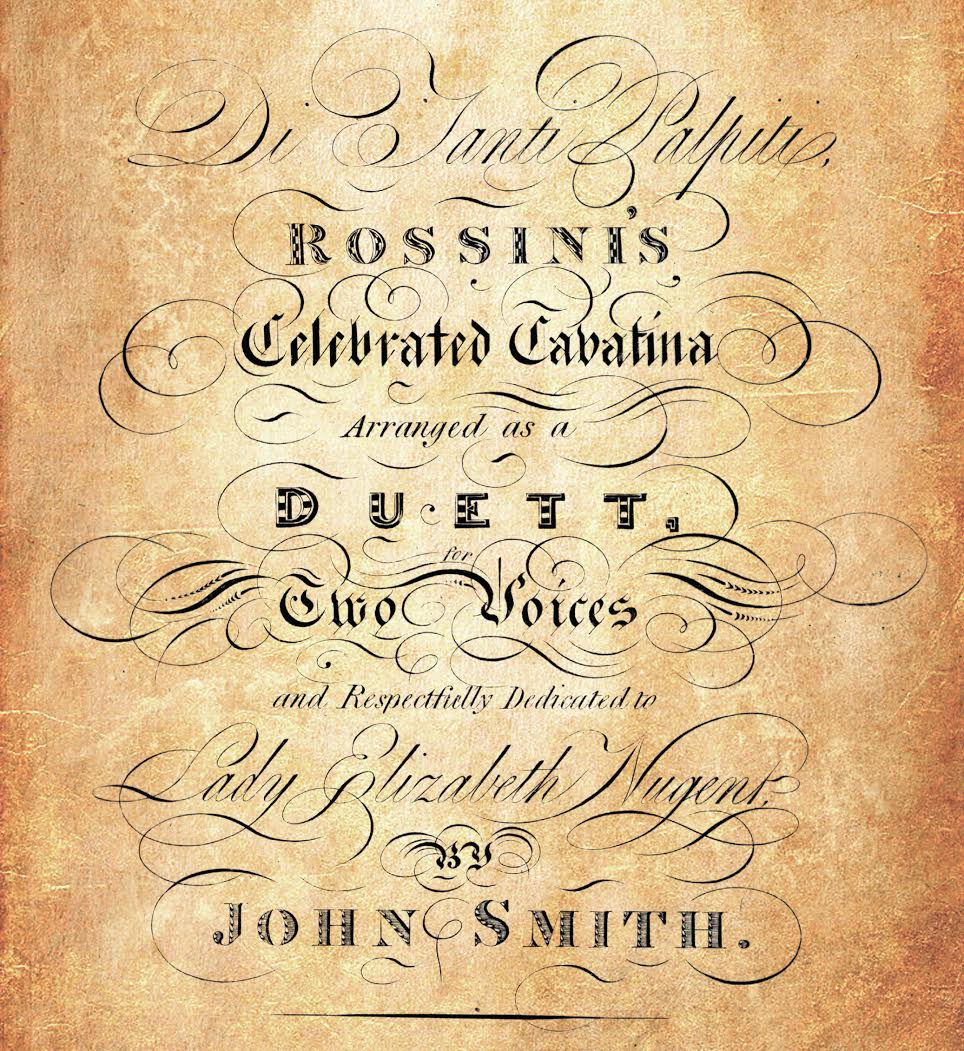 Di Tanti Palpiti,
ROSSINI'S
Celebrated Cavatina
Arranged as a
DUETT,
for
Two Voices
and Respectfully Dedicated to
Lady Elizabeth Nugent,
BY
JOHN SMITH.